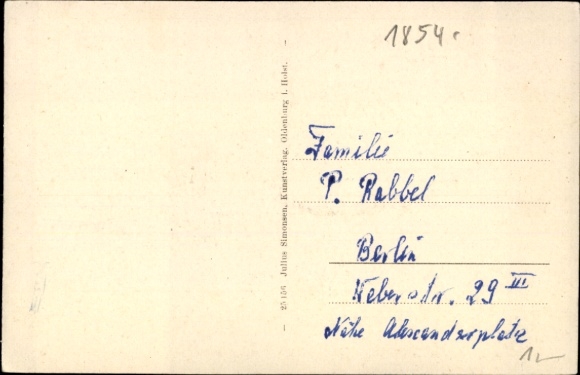 1854.
— 25156 Julius Simonsen, Kunstverlag, Oldenburg i. Holst. —
Familie
P. Rabbel
Berlin
Weberstr. 29 III
Nähe Alexanderplatz